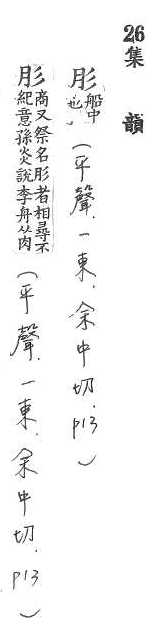 26集 韻
彤 船中也。(平聲.一東.余中切.p13)
彤 商又祭名彤者相尋不紀意孫炎說李舟从肉 (平聲.一東.余中切.p13)